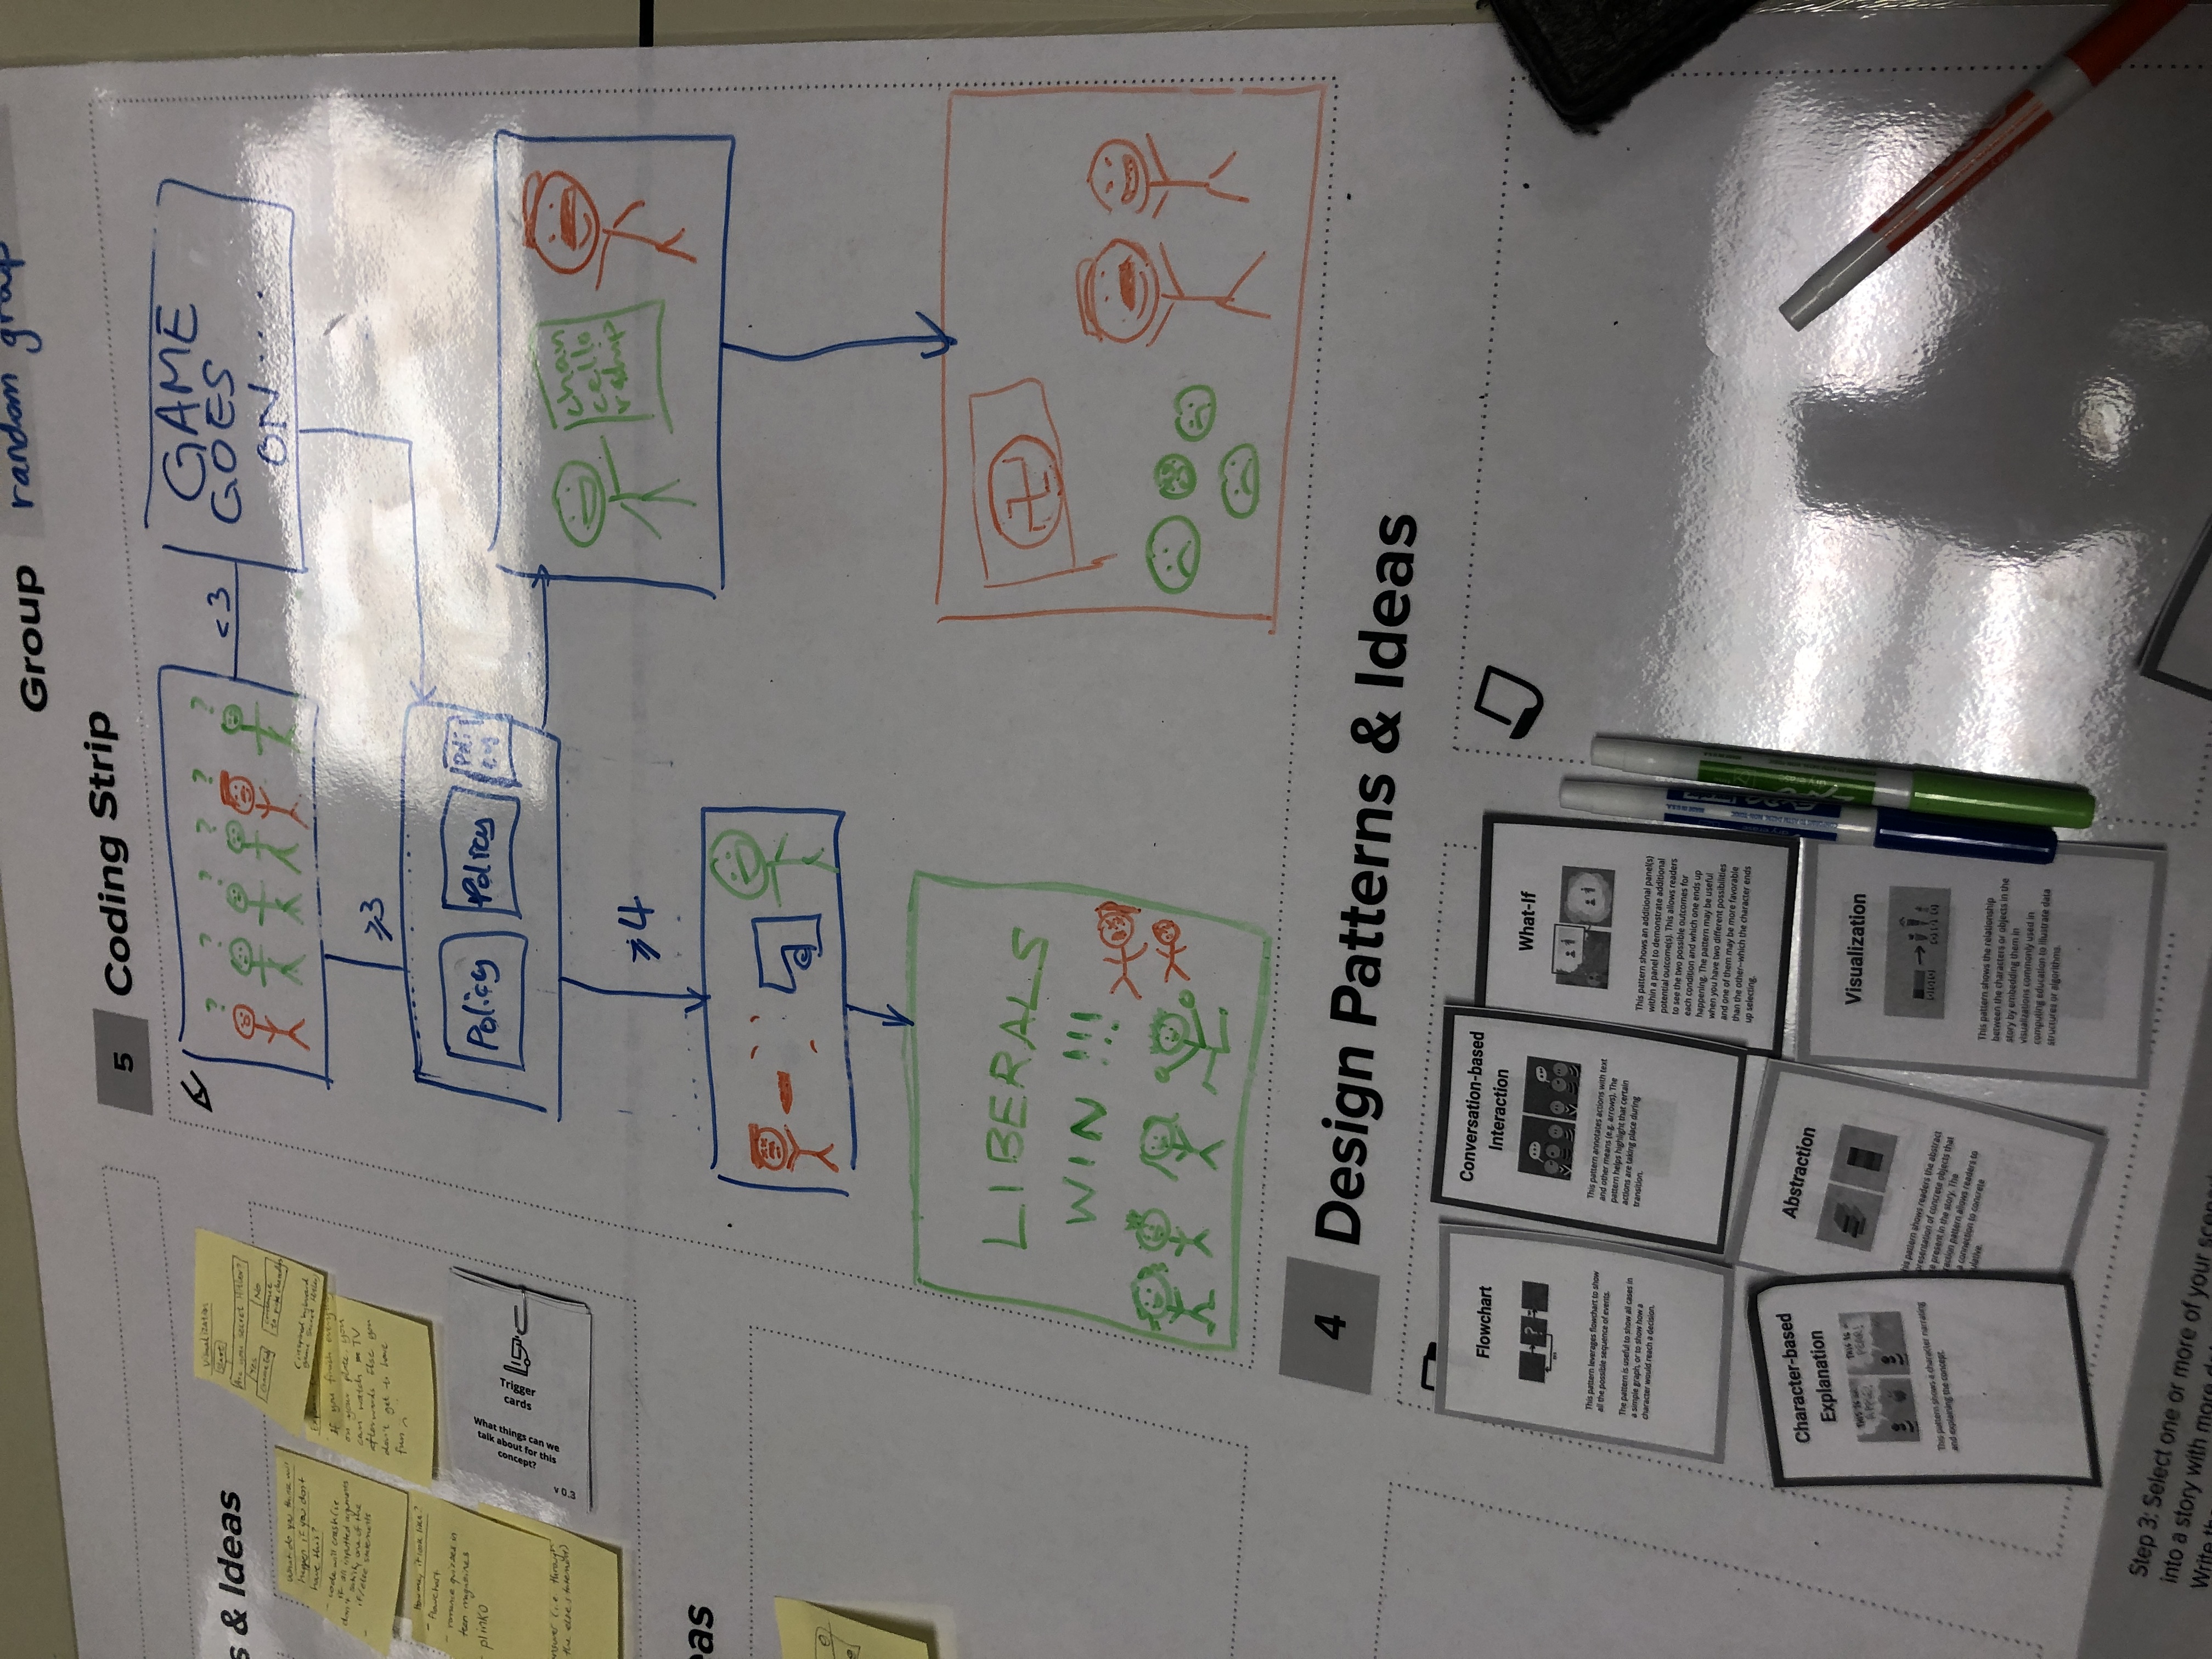 Group random group
5 Coding Strip
? ? ? ? ? ?
<3
GAME
GOES
ON....
≥3
Policy
Policy
Poli
cy
chan
cello
rship
≥4
LIBERALS
WIN !!!
s & Ideas
Visualization
Start
Are you secret Hitler?
Yes
No
What do you think will
happen if you don't
have this?
- code will crash (ie
if all inputted arguments
don't satisfy one of the
if/else statements
If you finish everything
on your plate, you
can watch TV
afterwards. Else you
don't get to have
fun
it look like?
- flowchart
- romance quizzes in
teen magazines
- plinko
(i.e. through
the else statement)
Trigger
cards
What things can we
talk about for this
concept?
v 0.3
eas
4 Design Patterns & Ideas
Flowchart
?
This pattern leverages flowchart to show
all the possible sequence of events.
The pattern is useful to show all cases in
a simple graph, or to show how a
character would reach a decision.
Conversation-based
Interaction
This pattern annotates actions with text
and other means (e.g. arrows). The
pattern helps highlight that certain
actions are taking place during
transition.
What-If
This pattern shows an additional panel(s)
within a panel to demonstrate additional
potential outcome(s). This allows readers
to see the two possible outcomes for
each condition and which one ends up
happening. The pattern may be useful
when you have two different possibilities
and one of them may be more favorable
than the other–which the character ends
up selecting.
Character-based
Explanation
THIS IS
APPLE!
THIS IS
PEAR!
This pattern shows a character narrating
and explaining the concept.
Abstraction
his pattern shows readers the abstract
presentation of concrete objects that
e present in the story. The
raction pattern allows readers to
a connection to concrete
ulative.
Visualization
This pattern shows the relationship
between the characters or objects in the
story by embedding them in
visualizations commonly used in
computing education to illustrate data
structures or algorithms.
Step 3: Select one or more of your
into a story with more
Write